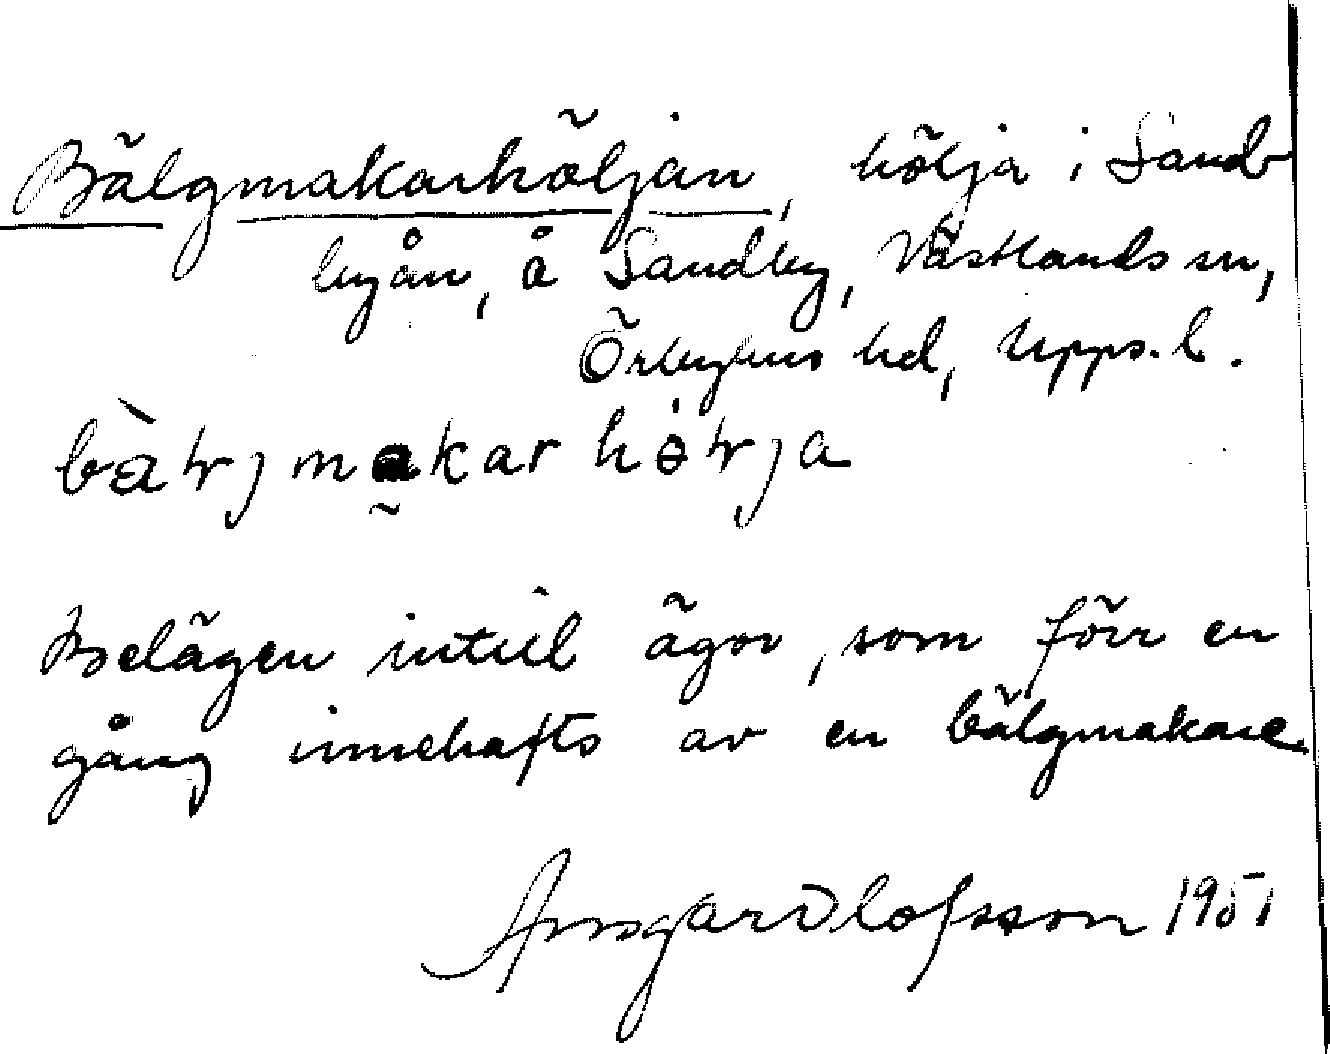 Bälgmakarhöljan, hölja i Sand
byån, å Sandby, Västlands sn,
Örbyhus hd, Upps. l.
bàlrj makar hölrja
Belägen intill ägor, som förr en
gång innehafts av en bälgmakare.
Ansgar Olofsson 1951